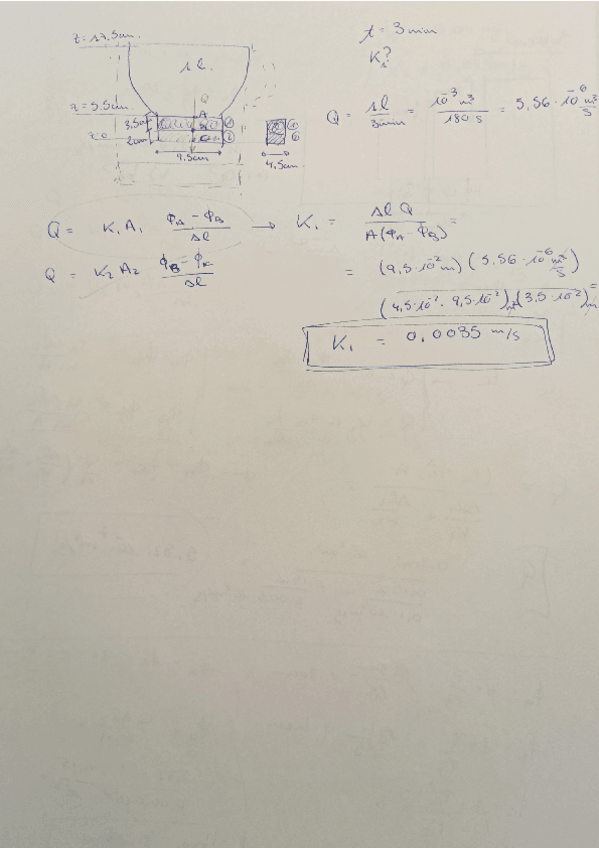 t = 3 min
K₁?
z = 17.5cm.
1 l.
Q
z = 5.5cm
A
3,5cm
B
①
z=0
2cm
C
②
9,5cm
①
②
4,5cm
Q = 1l / 3min = 10⁻³ m³ / 180 s = 5,56 · 10⁻⁶ m³/s
Q = K₁ A₁ (ϕA - ϕB) / Δl → K₁ = Δl Q / A(ϕA - ϕB) =
Q = K₂ A₂ (ϕB - ϕC) / Δl
= (9,5·10⁻² m) (5,56·10⁻⁶ m³/s) / (4,5·10⁻² · 9,5·10⁻²) m² (3,5·10⁻²) m =
K₁ = 0,0035 m/s